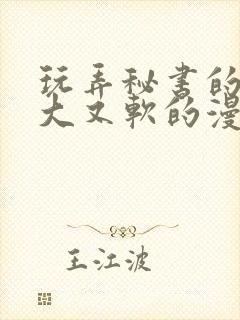 玩弄秘书的
大又软的漫
王江波